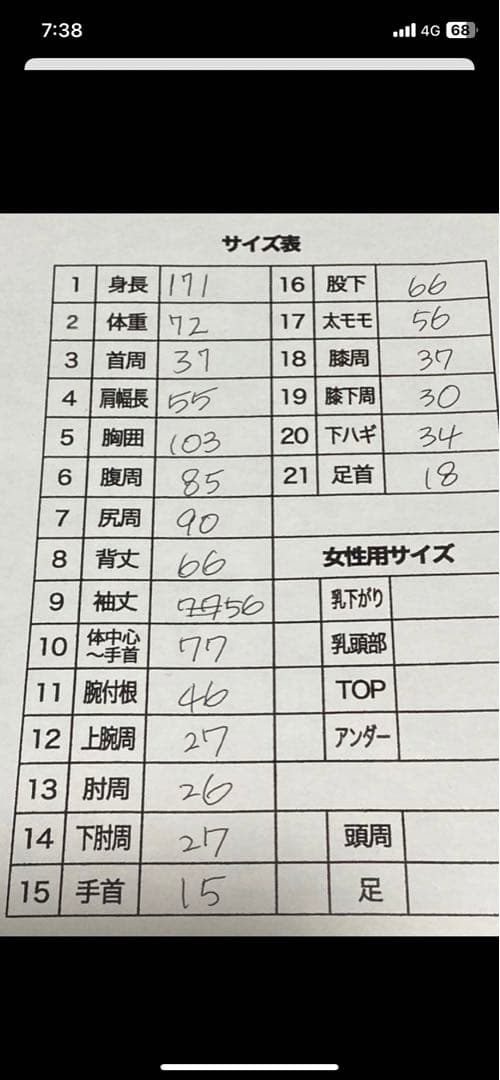 7:38
4G
68
サイズ表
1 身長 171 16 股下 66
2 体重 72 17 太モモ 56
3 首周 37 18 膝周 37
4 肩幅長 55 19 膝下周 30
5 胸囲 103 20 下ハギ 34
6 腹周 85 21 足首 18
7 尻周 90
8 背丈 66 女性用サイズ
9 袖丈 77 56 乳下がり
10 体中心
～手首 77 乳頭部
11 腕付根 46 TOP
12 上腕周 27 アンダー
13 肘周 26
14 下肘周 27 頭周
15 手首 15 足